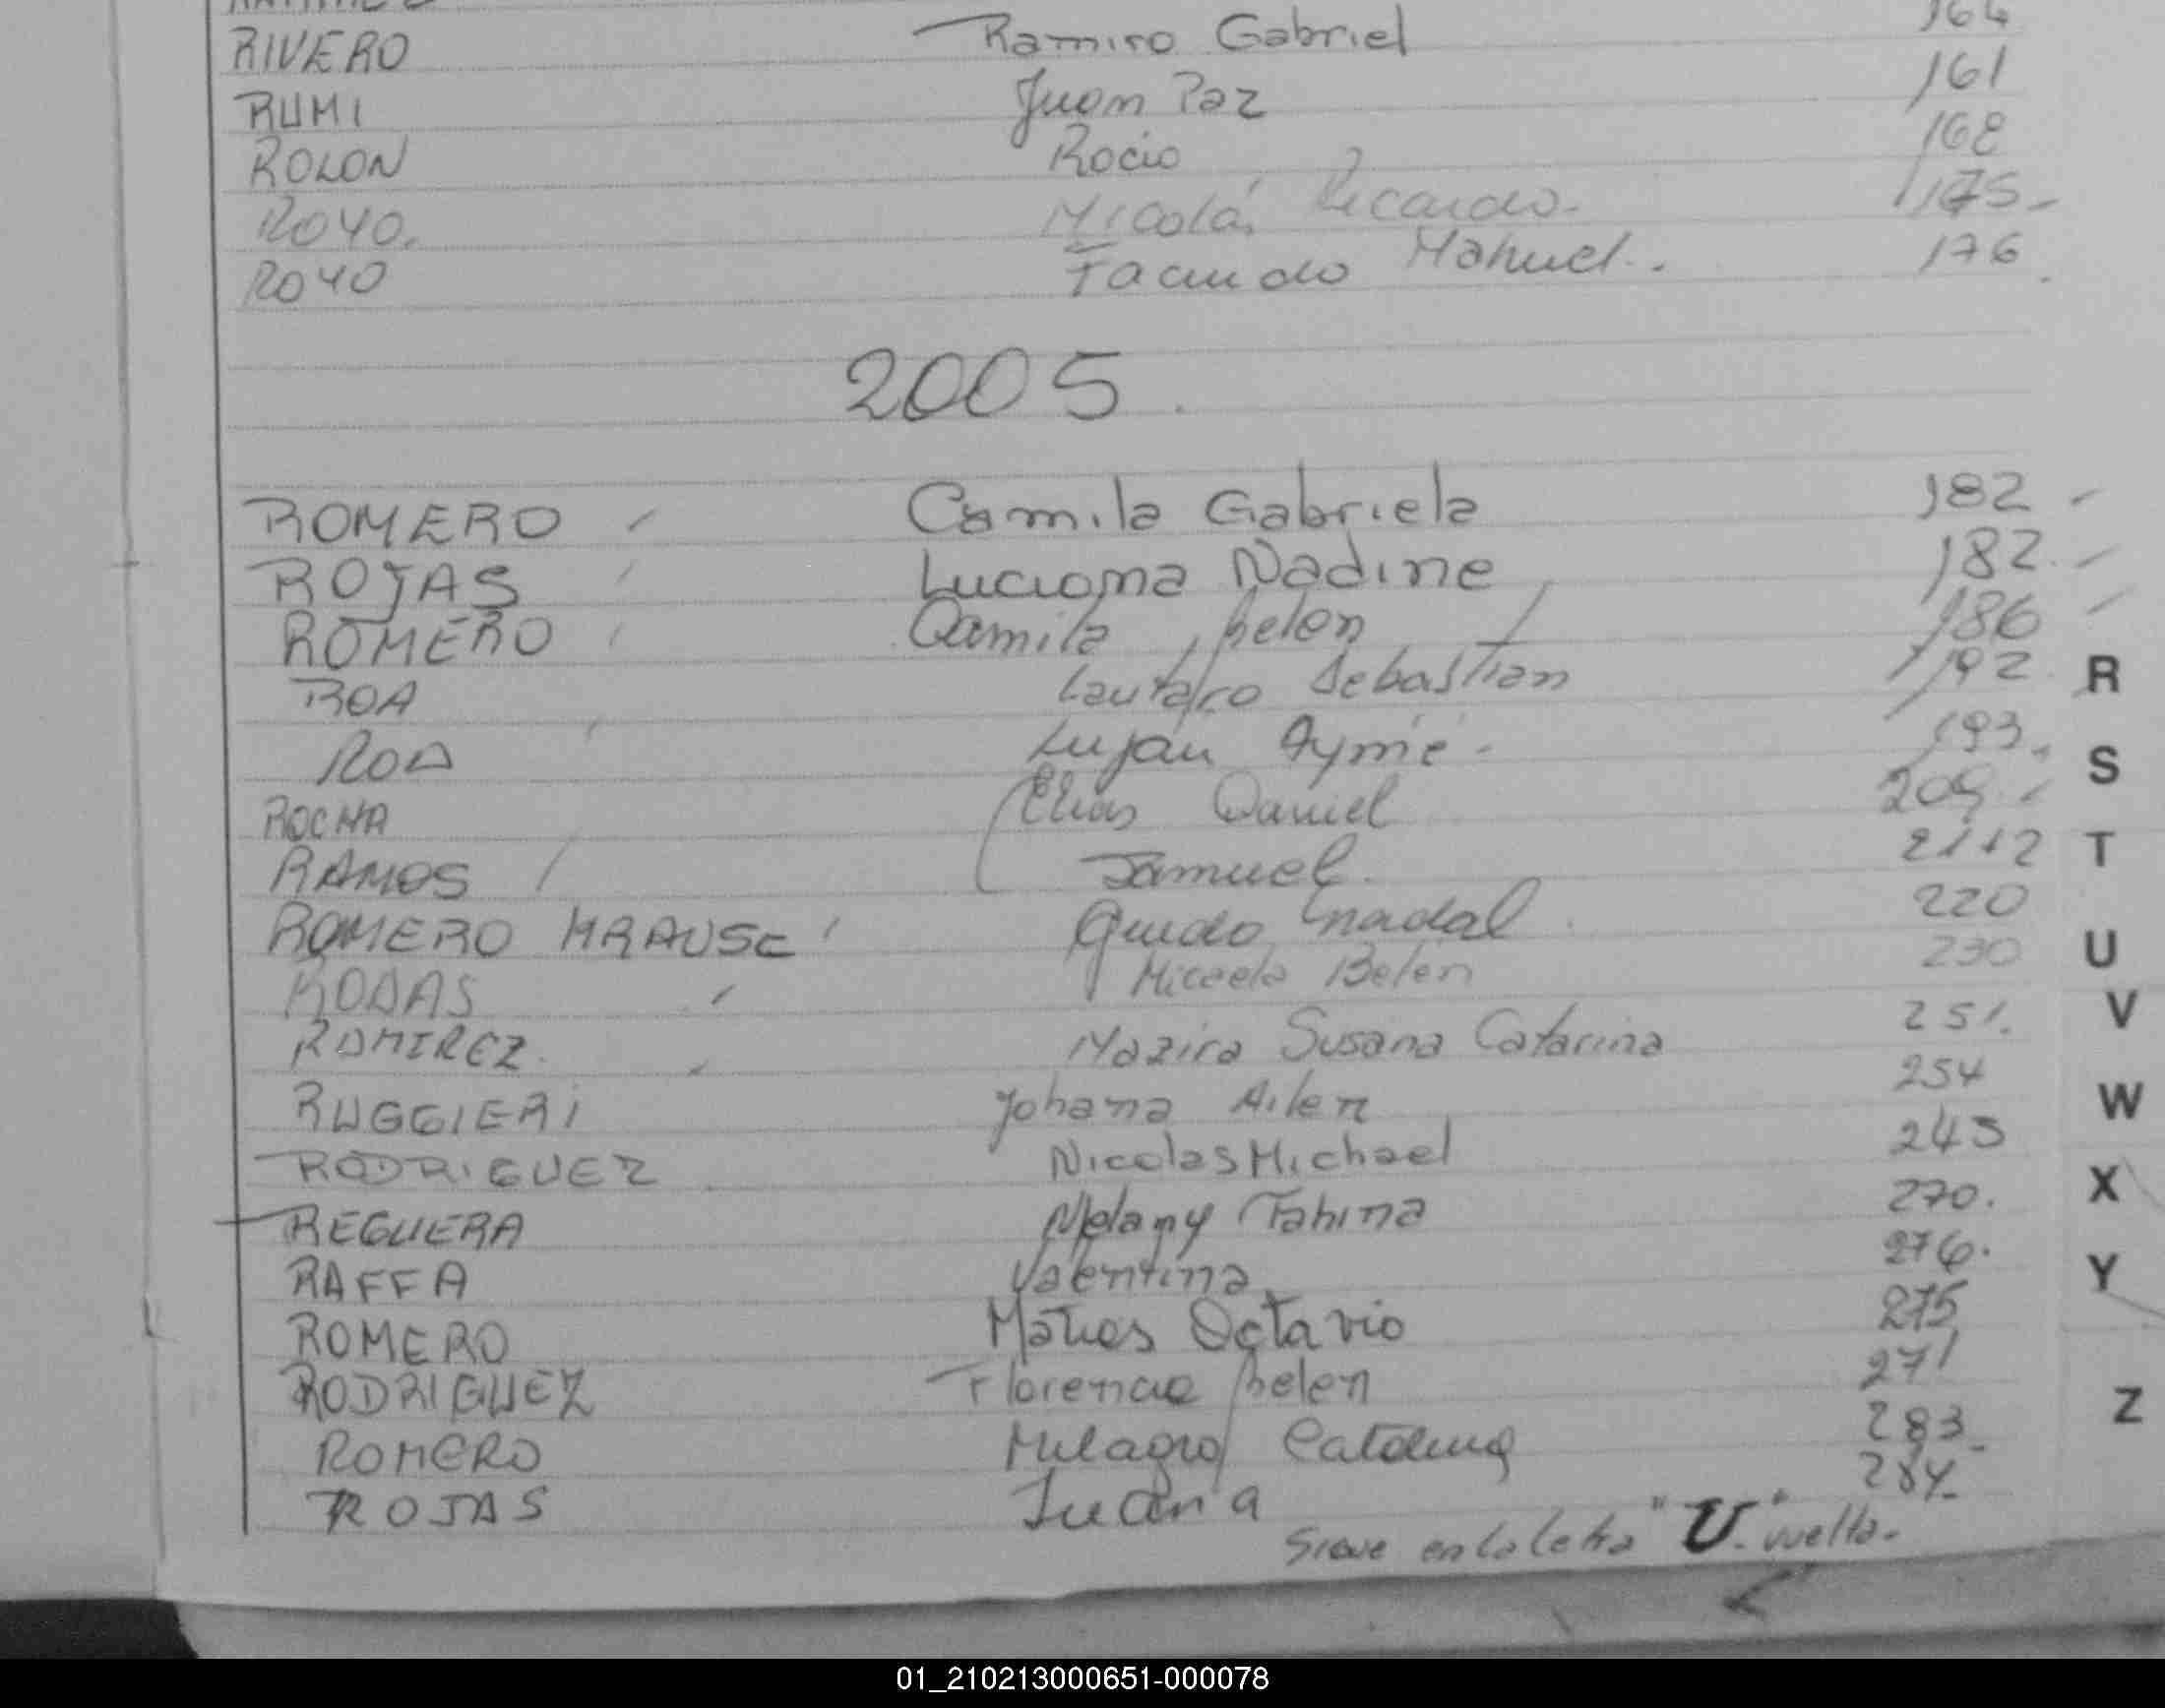 RIVERO Ramiro Gabriel 164
RUMI Juan Paz 161
ROLON Rocio 168
ROYO. Nicolás Ricardo. 175-
ROYO Facundo Manuel. 176.
2005.
ROMERO Camila Gabriela 182
ROJAS Luciana Nadine 182.
ROMERO Camila Belen 186
ROA Lautaro Sebastian 192
ROA Luján Aymé - 193.
ROCHA Elias Daniel 209
RAMOS Samuel. 212
ROMERO KRAUSE Guido 220
RODAS Micaela Belen 230
RAMIREZ. Nazira Susana Catarina 251.
RUGGIERI Johana Ailen 254
RODRIGUEZ Nicolas Michael 243
REGUERA Melany Tahina 270.
RAFFA Valentina 276.
ROMERO Matias Octavio 275
RODRIGUEZ Florencia Belen 271
ROMERO Milagro Catalina 283-
ROJAS Juana 284-
Sigue en la letra "U". vuelta-
R
S
T
U
V
W
X
Y
Z
01_210213000651-000078